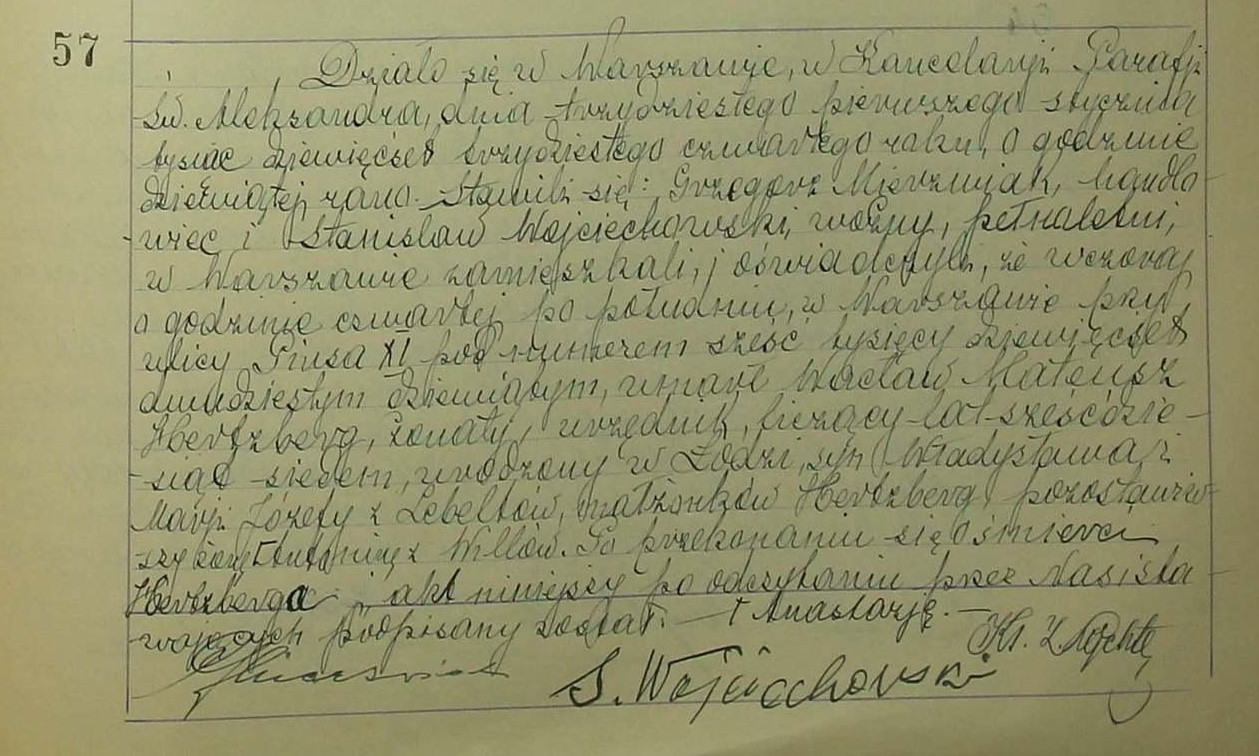 57
Działo się w Warszawie, w Kancelarji Parafji
św. Aleksandra, dnia trzydziestego pierwszego stycznia
tysiąc dziewięćset trzydziestego czwartego roku, o godzinie
dziewiątej rano. Stawili się: Grzegorz Mierzwiak, handlo-
wiec i Stanisław Wojciechowski, woźny, pełnoletni,
w Warszawie zamieszkali, i oświadczyli, że wczoraj
o godzinie czwartej po południu, w Warszawie przy
ulicy Piusa XI pod numerem sześć tysięcy dziewięćset
dwudziestym dziewiątym, umarł Wacław Mateusz
Hertzberg, żonaty, urzędnik, liczący lat sześćdzie-
siąt siedem, urodzony w Łodzi, syn Władysława i
Marji Józefy z Lebeltów, małżonków Hertzberg, pozostawiw-
szy żonę z Willów. Po przekonaniu się o śmierci
Hertzberga, akt niniejszy po odczytaniu przez Nas i sta-
wających podpisany został. + Anastazję. —
Ks. Z.
S. Wojciechowski